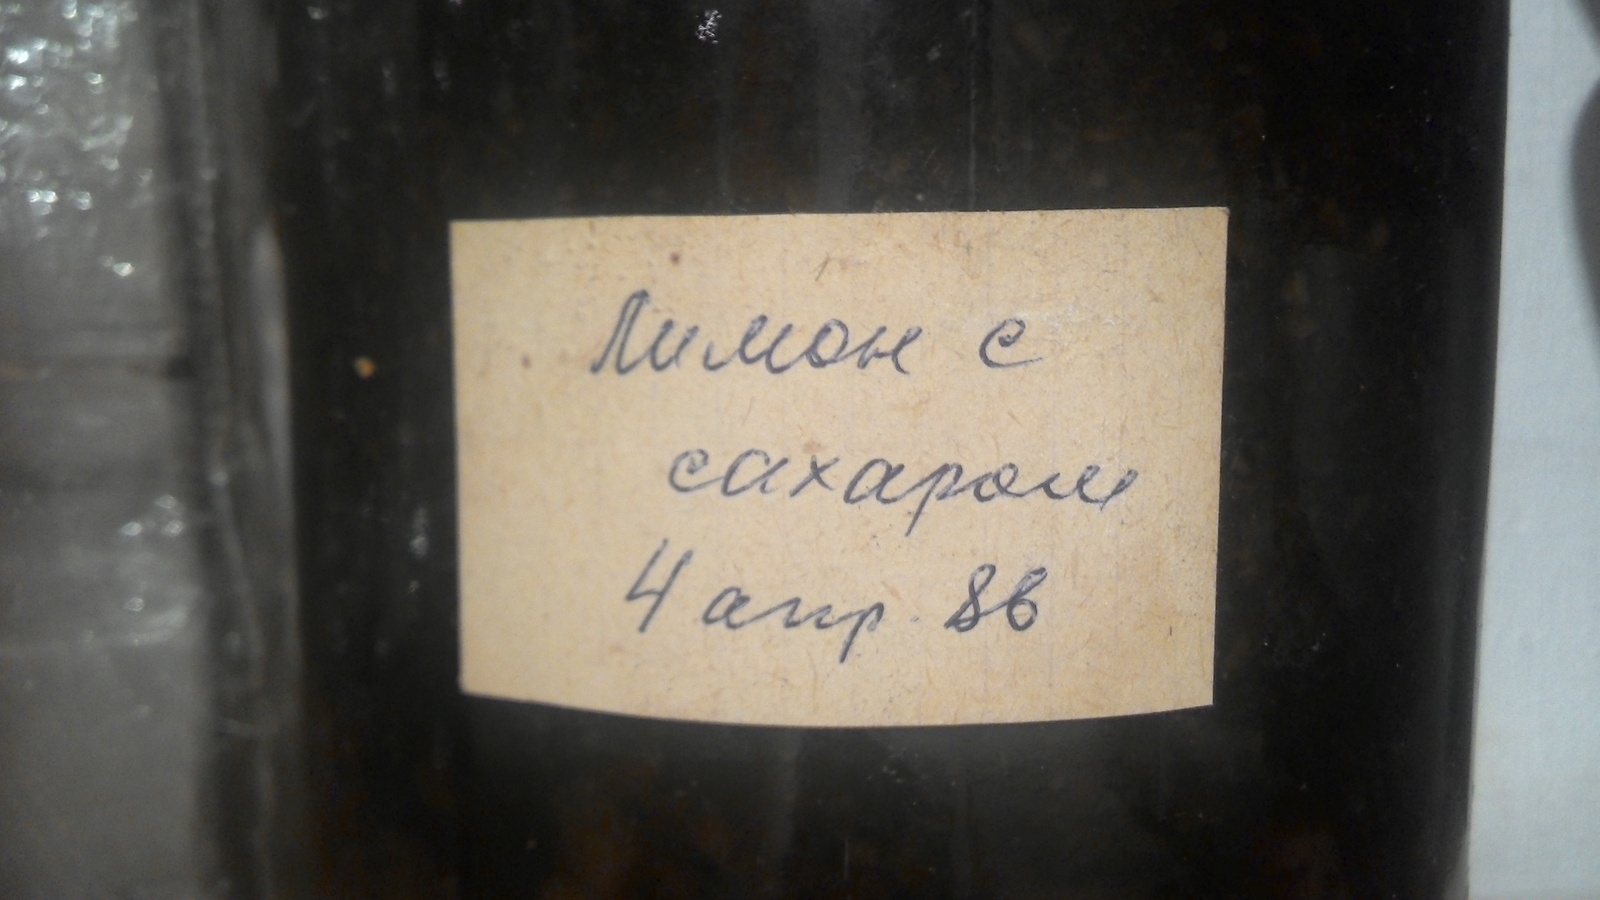 Лимон с
сахаром
4 апр. 86